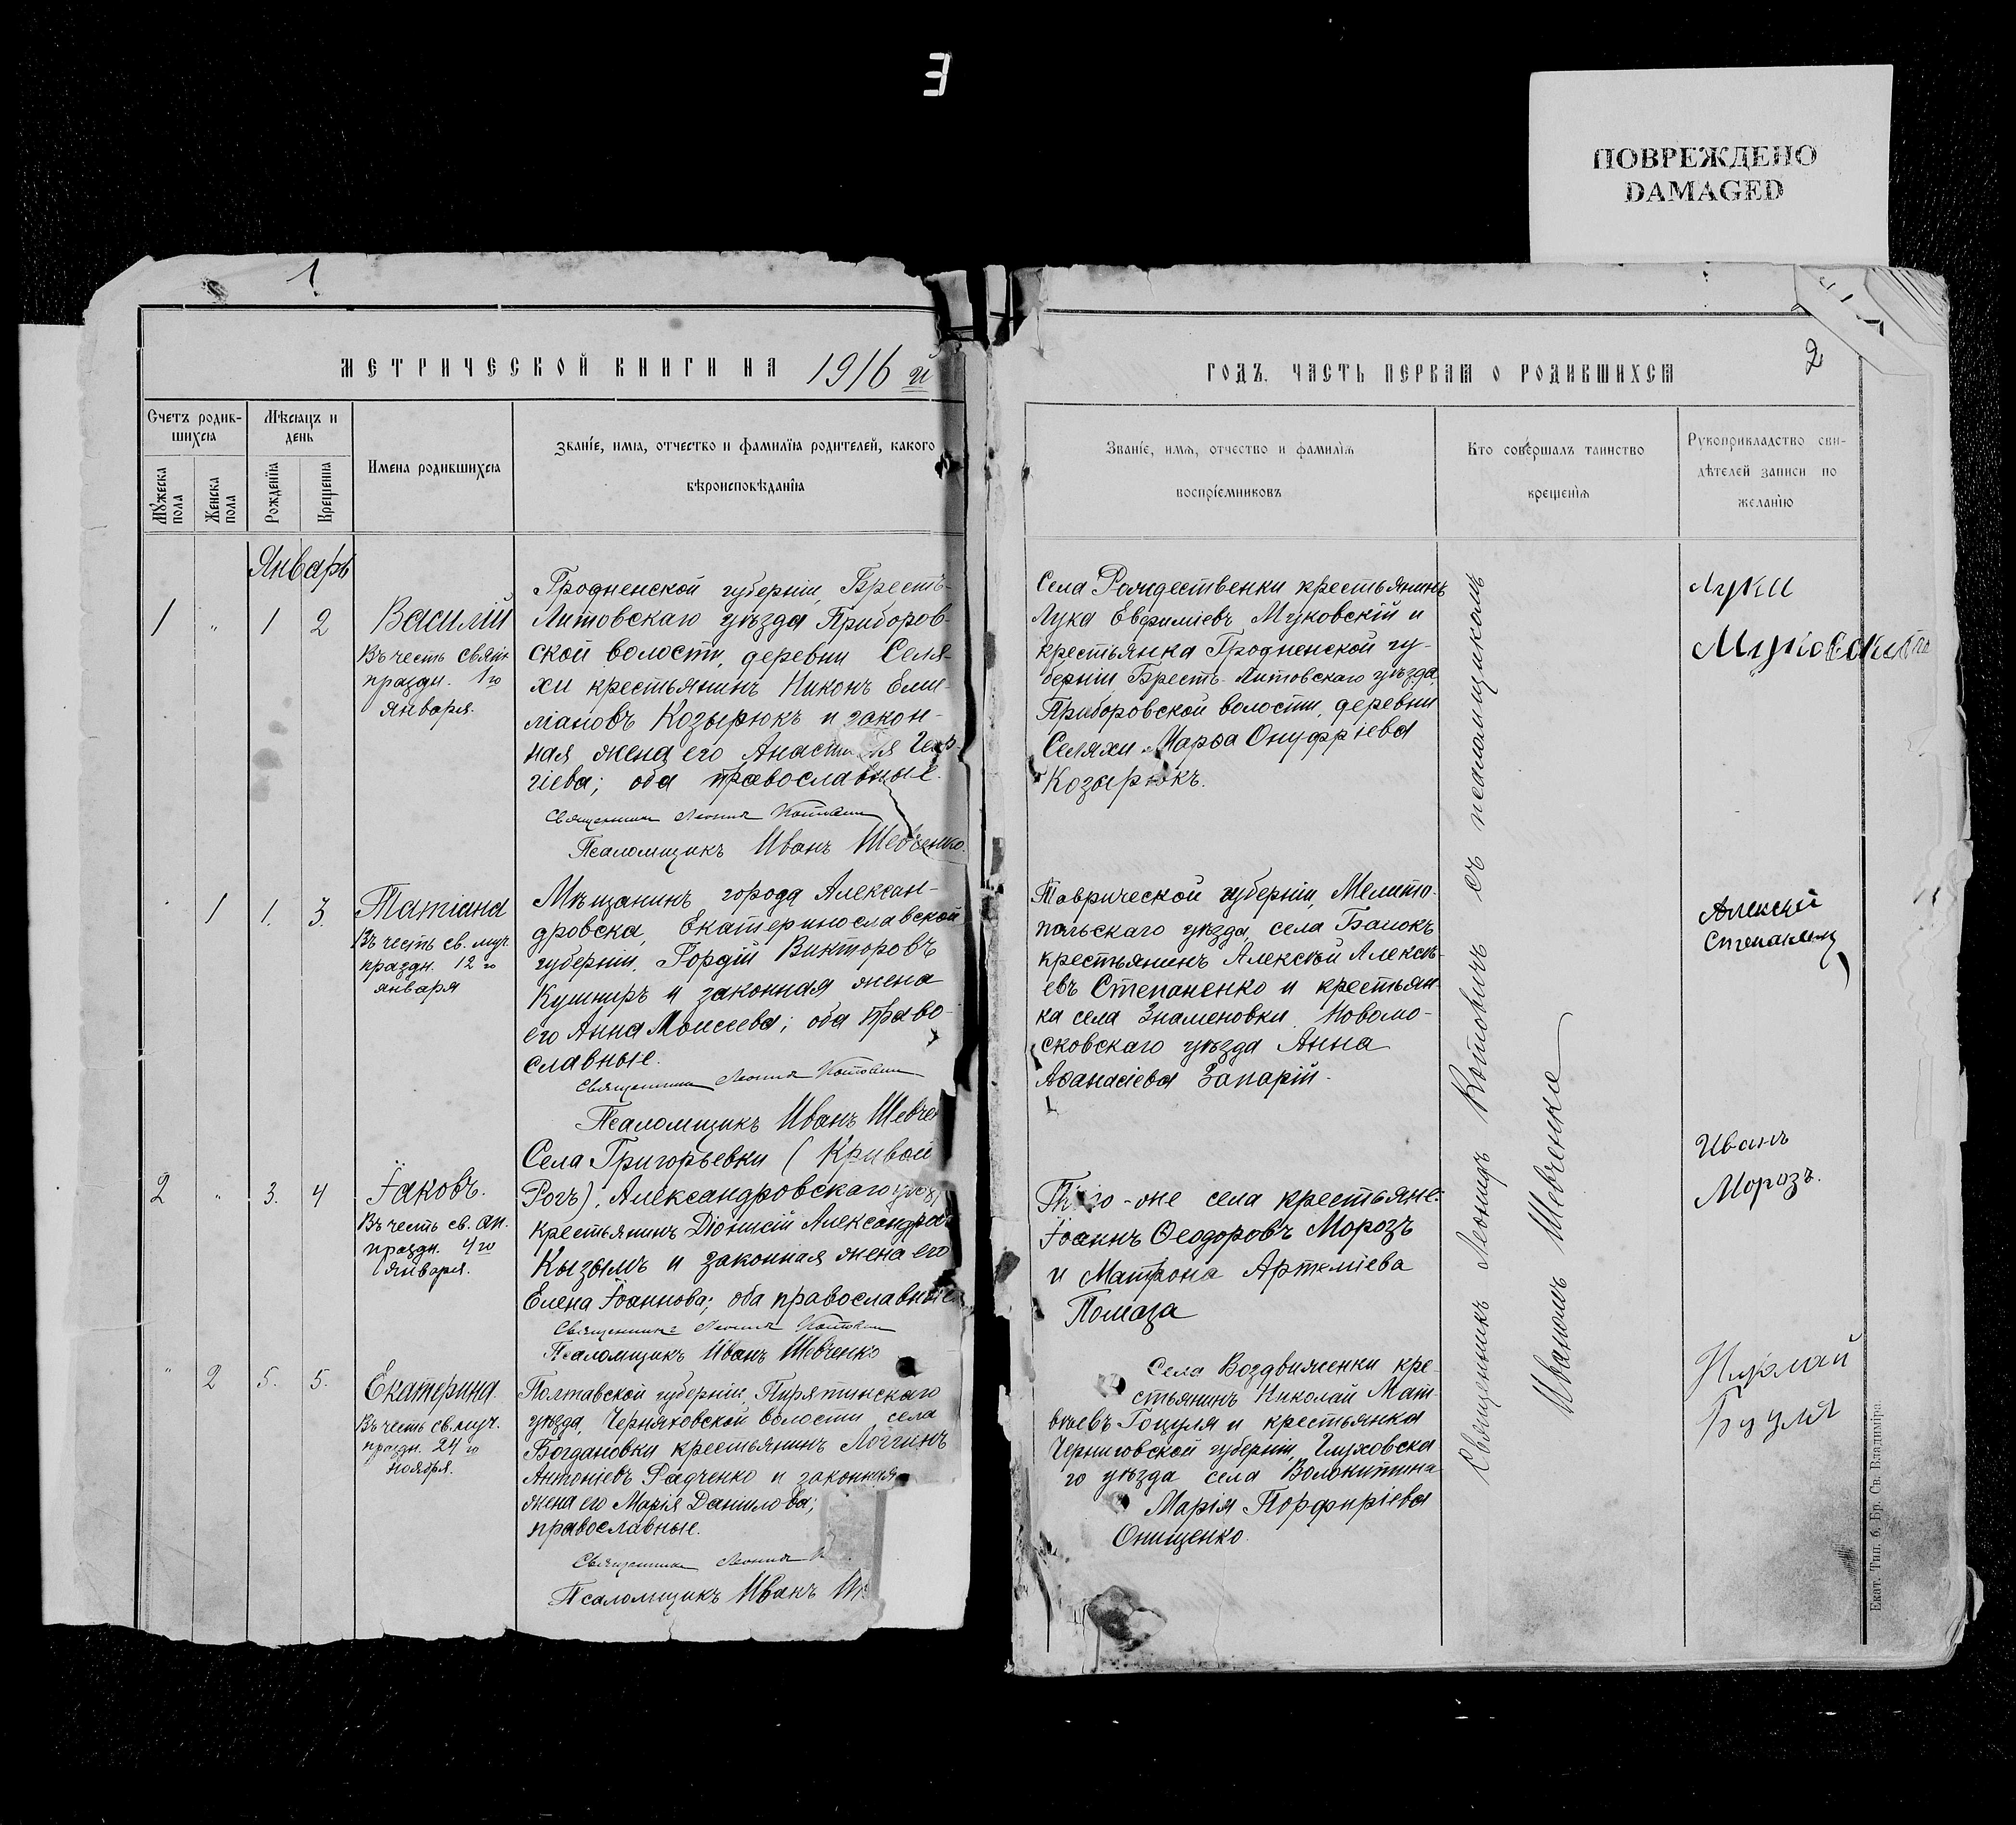 E
ПОВРЕЖДЕНО
DAMAGED
1
МЕТРИЧЕСКОЙ КНИГИ НА 1916 й
Счетъ родив-
шихся
Мѣсяцъ и
день
Мужеска
пола
Женска
пола
Рожденія
Крещенія
Имена родившихся
Званіе, имя, отчество и фамилія родителей, какого
вѣроисповѣданія
Январь
1 " 1 2
Василій
Въ честь свят.
праздн. 1го
января.
Гродненской губерніи, Брестъ-
Литовскаго уѣзда Приборов-
ской волости, деревни Селя-
хи крестьянинъ Никонъ Еми-
ліановъ Козырюкъ и закон-
ная жена его
гіева; оба православные.
Священникъ Леонидъ Котовичъ
Псаломщикъ Иванъ Шевченко.
1 1. 3.
Татіана
Въ честь св. муч.
праздн. 12го
января
Мѣщанинъ города Алексан-
дровска, Екатеринославской
губерніи, Гордій Викторовъ
Кушниръ и законная жена
его Анна Моисеева; оба право-
славные.
Священникъ Леонидъ Котовичъ
Псаломщикъ Иванъ Шевчен
2 " 3. 4
Іаковъ.
Въ честь св. ап.
праздн. 4го
января.
Села Григорьевки (Кривой
Рогъ), Александровскаго
крестьянинъ Діонисій
Кызымъ и законная жена его
Елена Іоаннова; оба православные
Священникъ Леонидъ Котовичъ
Псаломщикъ Иванъ Шевченко
" 2 5. 5.
Екатерина.
Въ честь св. муч.
праздн. 24го
ноября.
Полтавской губерніи, Пирятинскаго
уѣзда, Черняховской волости села
Богдановки крестьянинъ Логгинъ
Антоніевъ Радченко и законная
жена его Марія Данилова;
православные.
Священникъ Леонидъ
Псаломщикъ Иванъ
2
ГОДЪ, ЧАСТЬ ПЕРВАЯ О РОДИВШИХСЯ
Званіе, имя, отчество и фамилія
воспріемниковъ
Кто совершалъ таинство
крещенія
Рукоприкладство сви-
дѣтелей записи по
желанію
Села Рождественки крестьянинъ
Лука Евфиміевъ Муковскій и
крестьянка Гродненской гу-
берніи Брестъ-Литовскаго уѣзда,
Приборовской волости, деревни
Селяхи Марѳа Онуфріева
Козырюкъ.
Таврической губерніи, Мелито-
польскаго уѣзда, села Балокъ
крестьянинъ Алексѣй Алексѣ-
евъ Степаненко и крестьян-
ка села Знаменовки, Новомо-
сковскаго уѣзда Анна
Аѳанасіева Запарій.
села крестьяне:
Іоаннъ Ѳеодоровъ Морозъ
и Матрона Артеміева
Помаза
Села Воздвиженки кре
стьянинъ Николай Мат-
вѣевъ Гоцуля и крестьянка
Черниговской губерніи, Глуховска
го уѣзда села Волокитина
Марія Порфиріева
Онищенко.
Священникъ Леонидъ Котовичъ съ псаломщикомъ
Иваномъ Шевченко
Луки
Алексѣй
Степаненк
Иванъ
Морозъ.
Николай
Екат. Тип. б. Бр. Св. Владиміра.